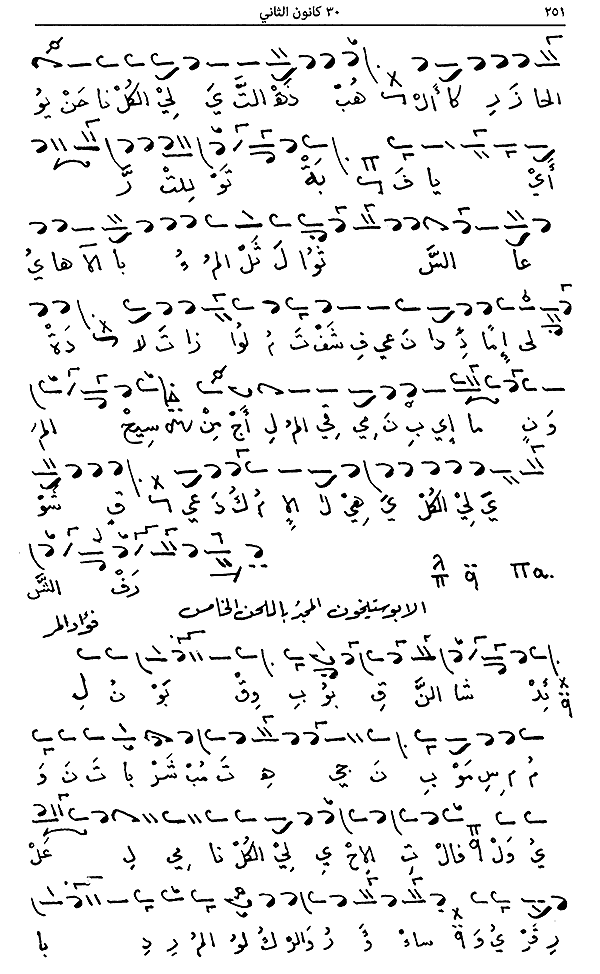 ٢٥١ ٣٠ كانون الثاني
الحا زَ دِ كا أَلْ هُبْ ذَهْ التَّ يَ لِيْ الكُلْ نا حَنْ يُو
أَيْ يا فَ بَةْ تَوْ لِلتْ رَّ
عا السَّ ثُوا لَ ثُلْ المُ ءُ با الآ ها يُ
لى إِمًا دِ دا نَ عي فِ شَفْ تَ مُ لُوا زا تَ لا دَةْ
وَ نٍ ما إِي بِ نَ مِي قِي المُ لِ أَجْ مِنْ سِيحْ المَ
يَ لِيْ الكُلْ يَ هِيْ لَ الإِ مُ كُ دَ عي قِ شَوْ
رَفْ الشَّ
πa.
الابوستيخون المجد باللحن الخامس
فؤاد المر
ئِدْ شا النَّ قِ بُو بِ وِقْ بَوْ نُ لِ
مُ مِ سِ مَوْ بِ نَ حي هِ تَ مُبْ شَرْ با تَ نَ دَ
يُ وَلْ قالْ تِ الِاخْ يِ لِيْ الكُلْ نا مِي لِ عَلْ
رِ قَرْ يُ وَ ساءْ ذَ رُ كُ لُو المُ رِ دِ با